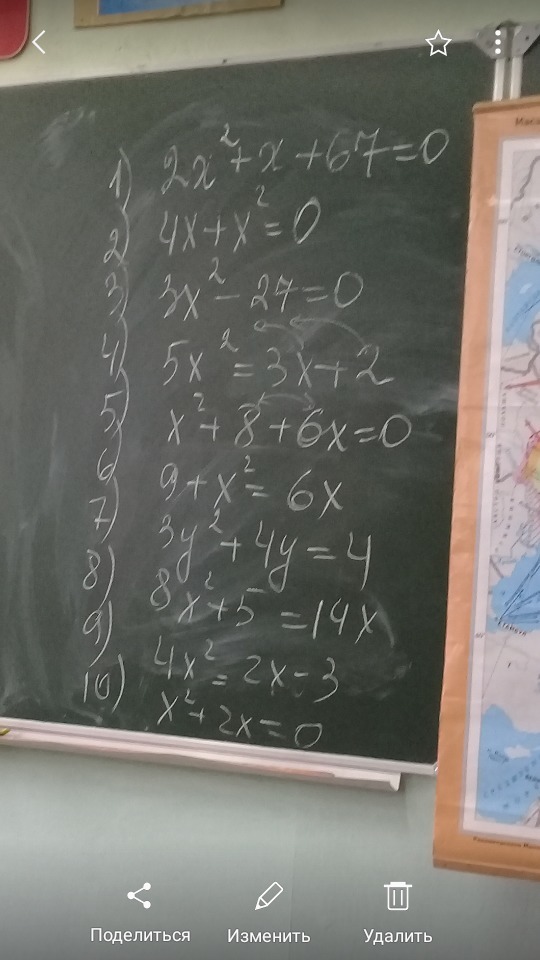 1) 2x²+x+67=0
2) 4x+x²=0
3) 3x²-27=0
4) 5x²=3x+2
5) x²+8+6x=0
6) 9+x²=6x
7) 3y²+4y=4
8) 8x²+5=14x
9) 4x²=2x-3
10) x²+2x=0
Поделиться
Изменить
Удалить